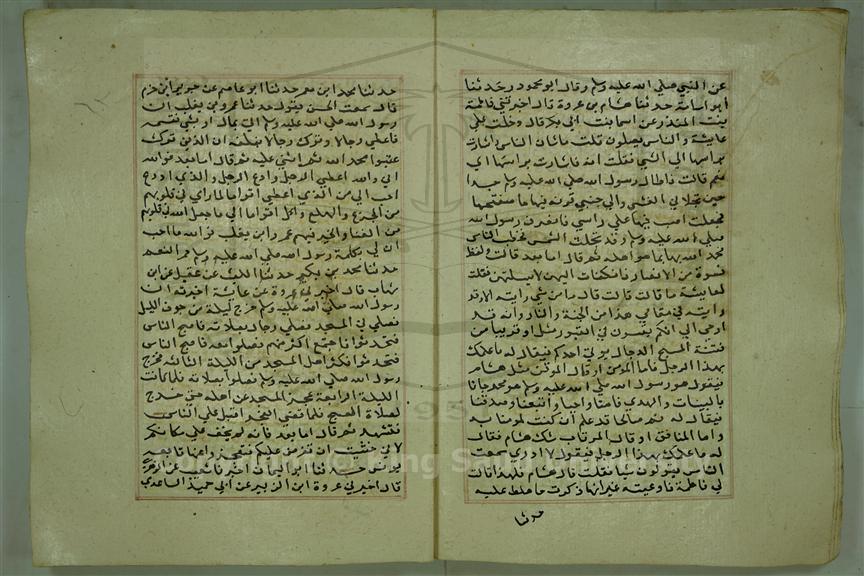 عن النبي صلي الله عليه وسلم وقال ابو محمود وحدثنا
ابو اسامة حدثنا هشام بن عروة قال اخبرتني فاطمة
بنت المنذر عن اسما بنت ابي بكر قال دخلت علي
عايشة والناس يصلون قلت ما شان الناس فاشارت
براسها الي الشمس فقلت اية فاشارت براسها اي
نعم قالت فاطال رسول الله صلي الله عليه وسلم جدا
حتي تجلاني الغشي والي جنبي قربة فيها ما ففتحتها
فجعلت اصب منها علي راسي فانصرف رسول الله
صلي الله عليه وسلم وقد تجلت الشمس فخطب الناس
محمد الله بما هو اهله ثم قال اما بعد قالت ولغط
نسوة من الانصار فانكفات اليهن لاسكتهن فقلت
لعايشة ما قالت قالت قال ما من شي رايته الا قد
رايته في مقامي هذا من الجنة والنار وانه قد
اوحي الي انكم تفتنون في القبور مثل او قريبا من
فتنة المسيح الدجال يوتي احدكم فيقال له ما علمك
بهذا الرجل فاما المومن او قال الموقن شك هشام
فيقول هو رسول الله صلي الله عليه وسلم هو محمد جانا
بالبينات والهدي فامنا واجبنا واتبعنا وصدقنا
فيقال له نم صالحا قد علم ان كنت لمومنا به
واما المنافق او قال المرتاب شك هشام فقال
له ما علمك بهذا الرجل فيقول لا ادري سمعت
الناس يقولون شيا فقلت قال هشام فلقد قالت
لي فاطمة فاوعيته غير انها ذكرت ما يغلظ عليه
حدثنا
حدثنا محمد ابن معمر حدثنا ابو عاصم عن جرير ابن حزم
قال سمعت الحسن يقول حدثنا عمرو بن تغلب ان
رسول الله صلي الله عليه وسلم اتي بمال او بشي فقسمه
فاعطي رجالا وترك رجالا فبلغه ان الذين ترك
عتبوا فحمد الله ثم اثني عليه ثم قال اما بعد فوالله
اني والله اعطي الرجل وادع الرجل والذي ادع
احب الي من الذي اعطي اقواما لما اري في قلوبهم
من الجزع والهلع واكل اقواما الي ما جعل الله في قلوبهم
من الغنا والخير فيهم عمرو ابن تغلب فوالله ما احب
ان لي بكلمة رسول الله صلي الله عليه وسلم حمر النعم
حدثنا محمد بن بكير حدثنا الليث عن عقيل عن ابن
شهاب قال اخبرني عروة عن عائشة اخبرته ان
رسول الله صلي الله عليه وسلم خرج ليلة من جوف الليل
فصلي في المسجد فصلي رجال بصلاته فاصبح الناس
فتحدثوا فاجتمع اكثر منهم فصلوا معه فاصبح الناس
فتحدثوا فكثر اهل المسجد من الليلة الثالثة فخرج
رسول الله صلي الله عليه وسلم فصلوا بصلاته فلما كانت
الليلة الرابعة عجز المسجد عن اهله حتي خرج
لصلاة الصبح فلما قضي الفجر اقبل علي الناس
فتشهد ثم قال اما بعد فانه لم يخف علي مكانكم
لاني خشيت ان تفرض عليكم فتعجزوا عنها تابعه
يونس حدثنا ابو اليمان اخبرنا شعيب عن الزهري
قال اخبرني عروة ابن الزبير عن ابي حميد الساعدي